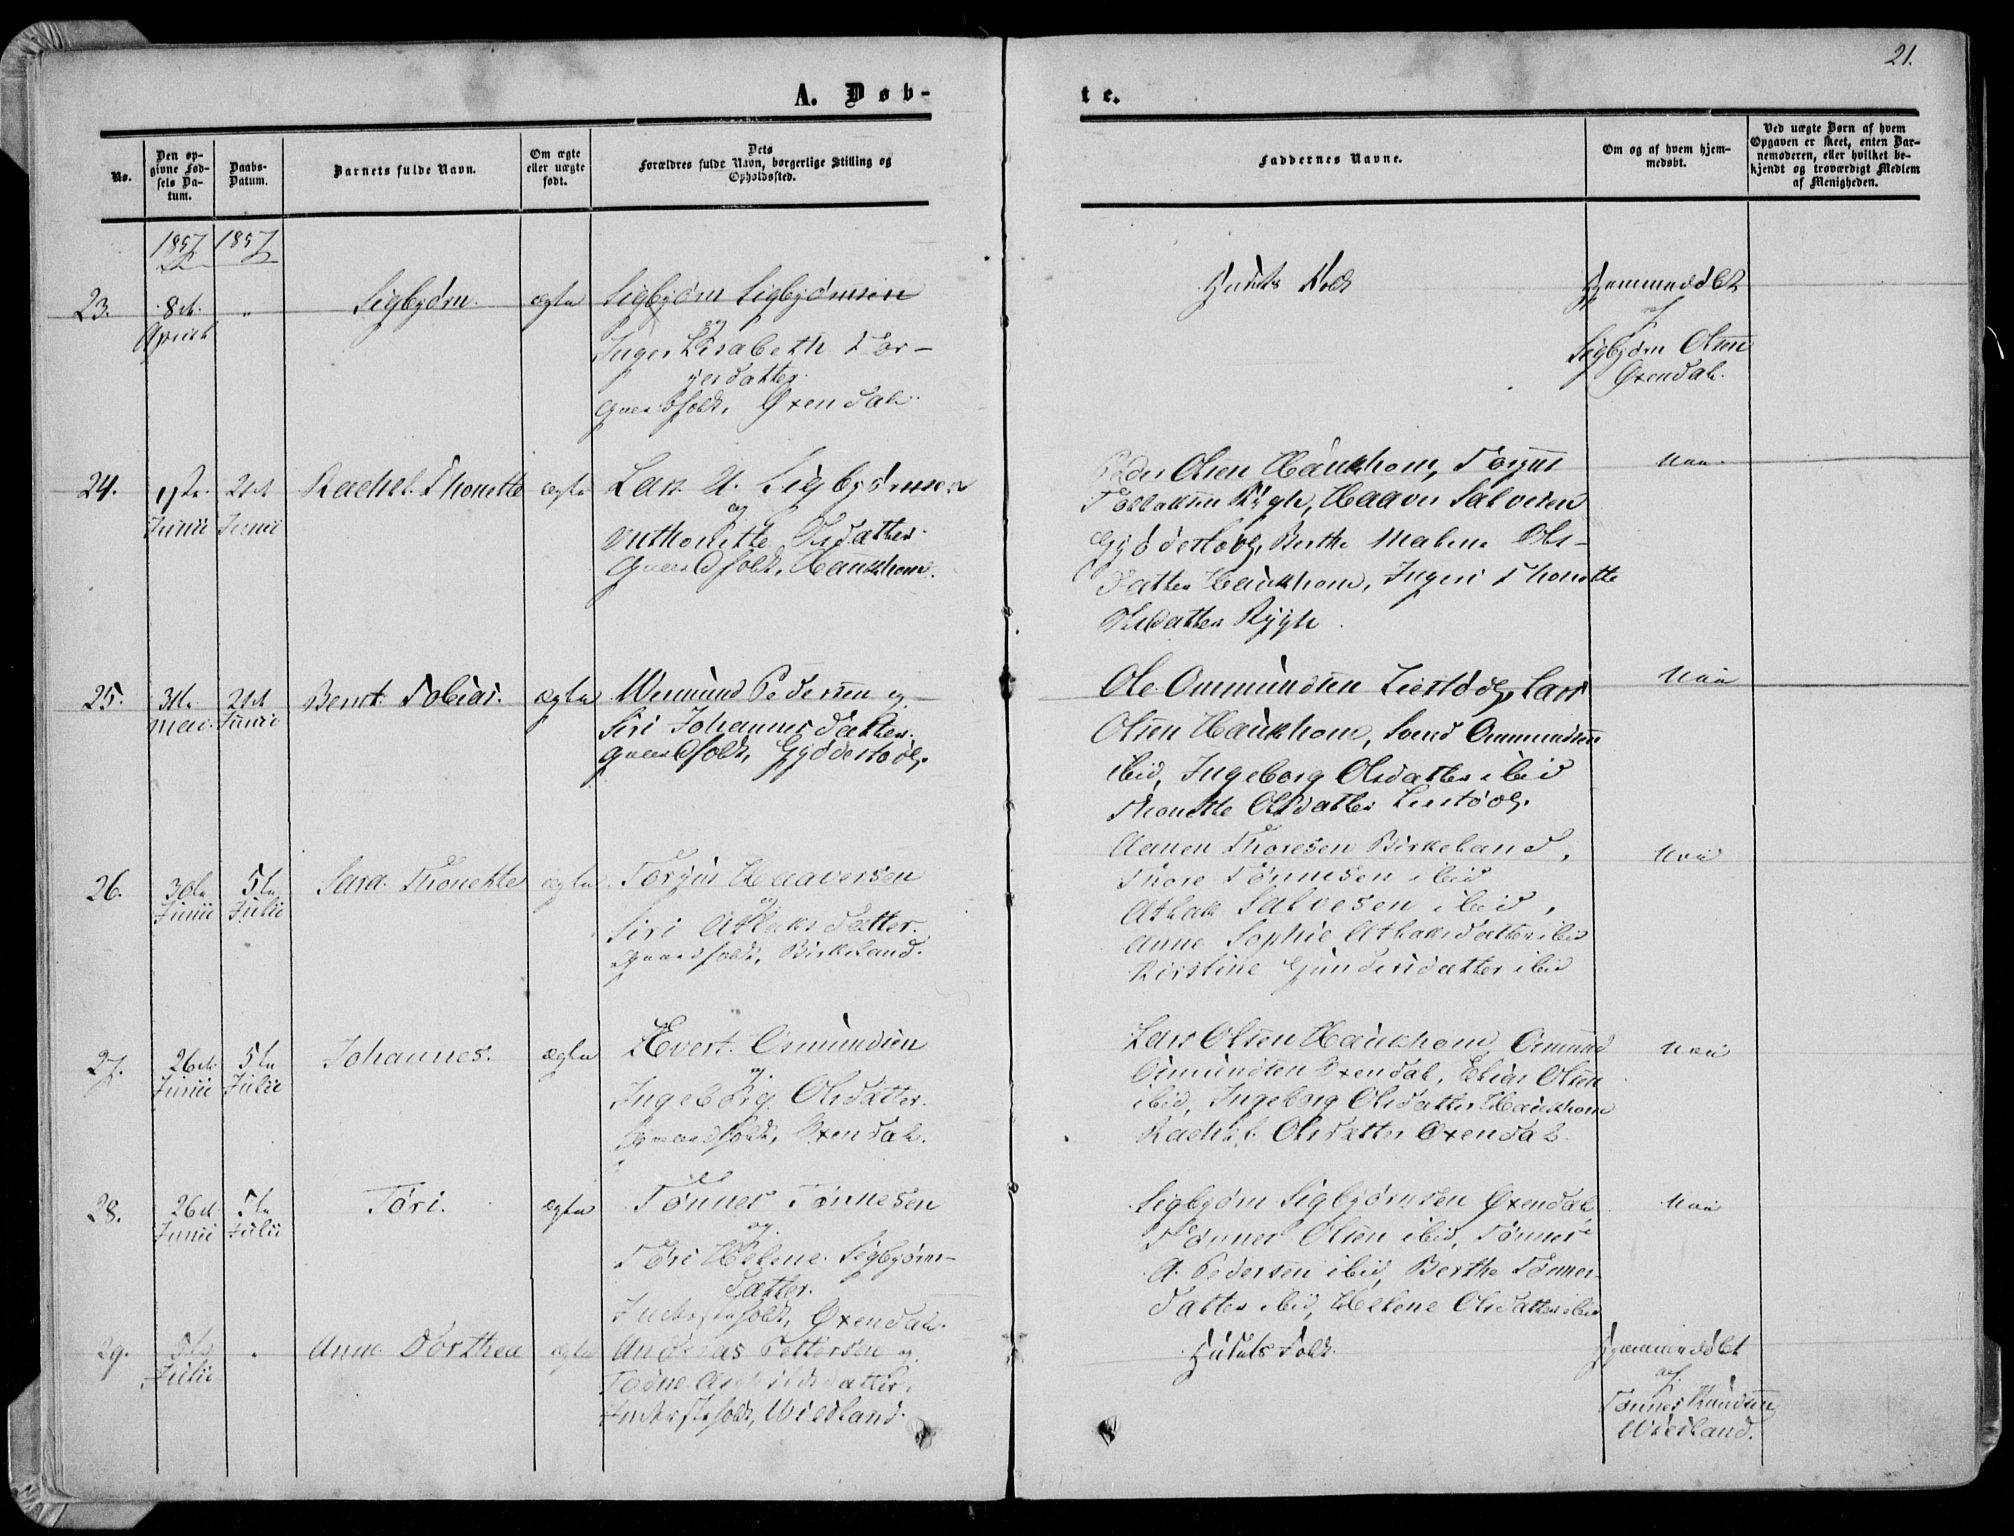 21.
A. Døb-
te.
No.
Den op-
givne Fød-
sels Da-
tum.
Daabs-
Datum.
Barnets fulde Navn.
Om ægte
eller uægte
født.
Dets
Forældres fulde Navn, borgerlige Stilling og
Opholdssted.
Faddernes Navne.
Om og af hvem hjem-
medøbt.
Ved uægte Børn af hvem
Opgaven er skeet, enten Bar-
nemoderen, eller hvilket be-
kjendt og troværdigt Medlem
af Menigheden.
1857 1857
23.
8de
April
"
Sigbjørn.
ægte
Sigbjørn Sigbjørnsen
og
Inger Elisabeth Tor-
jersdatter.
Gaardfolk, Øxendal.
Huusets Folk
Hjemmedøbt
af
Sigbjørn Olsen
Øxendal.
24.
Junii
21de
Junii
Rachel Thonette
ægte
Lars A. Sigbjørnsen
og
Anthonette Olsdatter
Gaardfolk, Haukhom.
Peder Olsen Haukhom, Torjus
Tollaksen Rygh, Haaver Salvesen
Gyderstøl, Berthe Malene Ols-
datter Haukhom, Ingeri Thonette
Olsdatter Rygh.
Nei
25.
Mai
21de
Junii
Bernt Tobias.
ægte
Wermund Pedersen og
Siri Johannesdatter.
Gaardfolk, Gyderstøl.
Ole Ommundsen Lestøl, Lars
Olsen Haukhom, Svend Ommundsen
ibid, Ingeborg Olsdatter ibid
Thonette Olsdatter Lestøl.
Nei
26.
3die
Junii
5te
Julii
Sara Thonette
ægte
Torjus Haaversen
og
Siri Atlaksdatter.
Gaardfolk, Birkeland.
Aanen Thoresen Birkeland,
Thore Tønnesen ibid
Atlak Salvesen ibid,
Anne Sophie Atlaksdatter ibid
Kirstine Gundersdatter ibid
Nei
27.
26de
Junii
5te
Julii
Johannes.
ægte
Evert Osmundsen
og
Ingeborg Olsdatter.
Gaardfolk, Øxendal.
Lars Olsen Haukhom, Osmund
Osmundsen Øxendal, Elias Olsen
ibid, Ingeborg Olsdatter Haukhom
Rachel Olsdatter Øxendal.
Nei
28.
26de
Junii
5te
Julii
Tøri.
ægte
Tønnes Tønnesen
og
Tøri Helene Sigbjørns-
datter.
Inderstefolk, Øxendal.
Sigbjørn Sigbjørnsen Øxendal
Tønnes Olsen ibid, Tønnes
A. Pedersen ibid, Berthe Tønnes-
datter ibid, Helene Olsdatter ibid
Nei
29.
5te
Julii
"
Anne Dorthea
ægte
Andreas Pettersen og
Todne datter,
Inderstefolk, Wiisland.
Husets Folk.
Hjemmedøbt
af
Tønnes Knudsen
Wiisland.